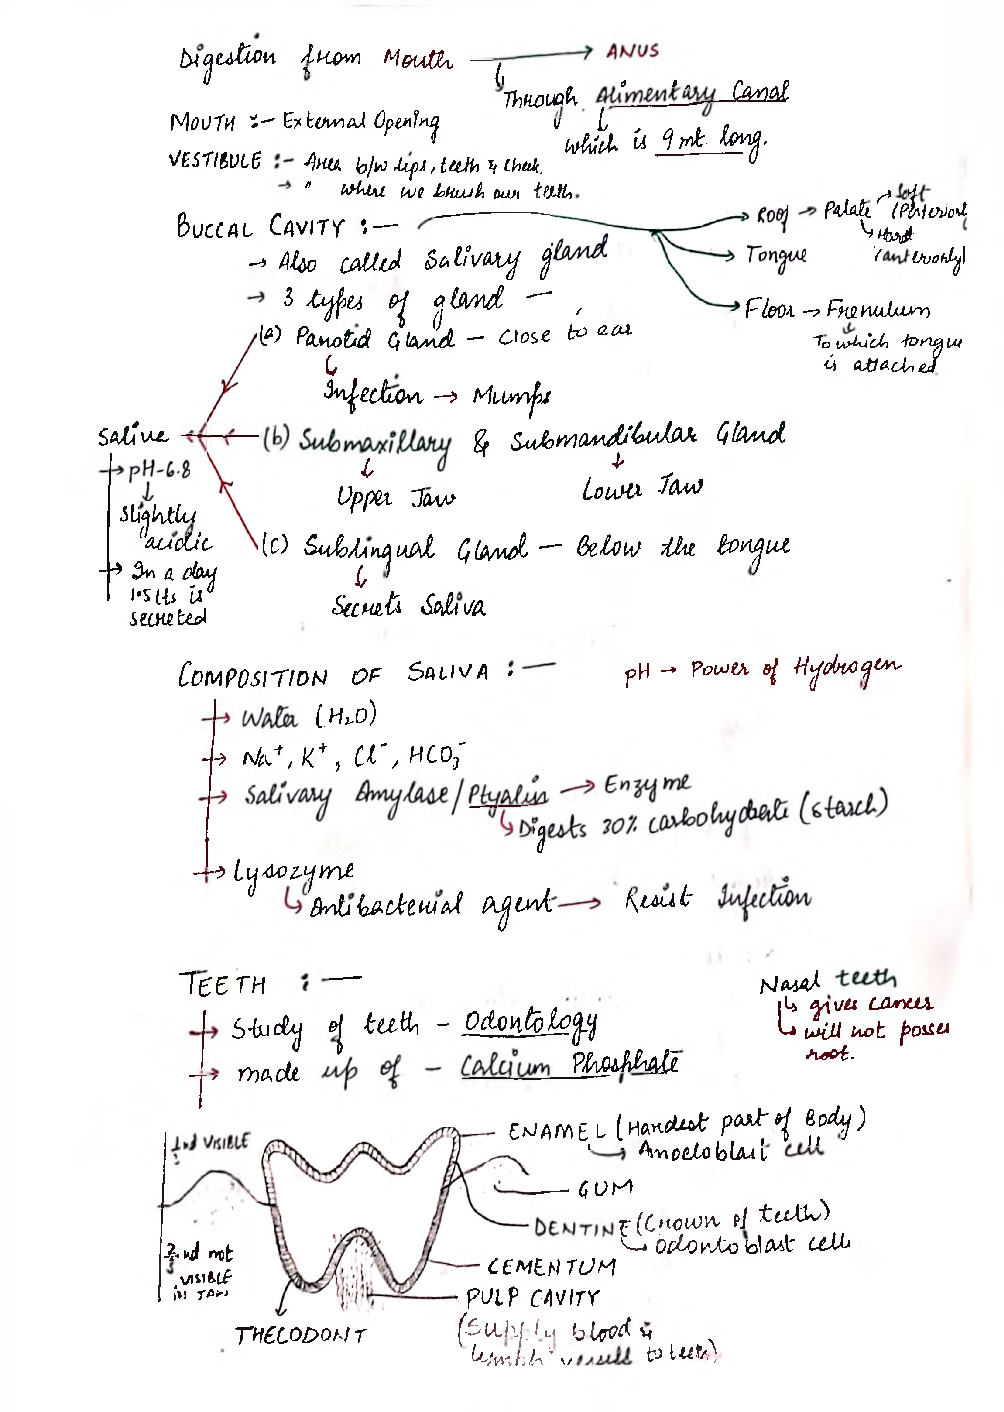 Digestion from Mouth → ANUS
Through Alimentary Canal
which is 9 mt. long.
MOUTH :- External Opening
VESTIBULE :- Area b/w lips, teeth & cheek.
→ " where we brush our teeth.
BUCCAL CAVITY :-
→ Roof → Palate → Soft (Posteriorly)
→ Hard (anteriorly)
→ Tongue
→ Floor → Frenulum
To which tongue
is attached
→ Also called Salivary gland
→ 3 types of gland —
(a) Parotid Gland — Close to ear
Infection → Mumps
Salive
(b) Submaxillary & Submandibular Gland
Upper Jaw
Lower Jaw
→ pH-6.8
Slightly
acidic
→ In a day
1.5 lts is
secreted
(c) Sublingual Gland — Below the tongue
Secrets Saliva
COMPOSITION OF SALIVA :—
pH → Power of Hydrogen
→ Water (H₂O)
→ Na⁺, K⁺, Cl⁻, HCO₃⁻
→ Salivary Amylase/Ptyalin → Enzyme
Digests 30% carbohydrate (starch)
→ Lysozyme
Antibacterial agent → Resist Infection
TEETH :—
→ Study of teeth - Odontology
→ made up of - Calcium Phosphate
Nasal teeth
gives cancer
will not posses
root.
1/3nd VISIBLE
2/3nd not
VISIBLE
in JAW
ENAMEL (Hardest part of Body)
Ameloblast cell
GUM
DENTINE (Crown of teeth)
Odontoblast cell
CEMENTUM
PULP CAVITY
(Supply blood &
lymph vessell to teeth)
THECODONT